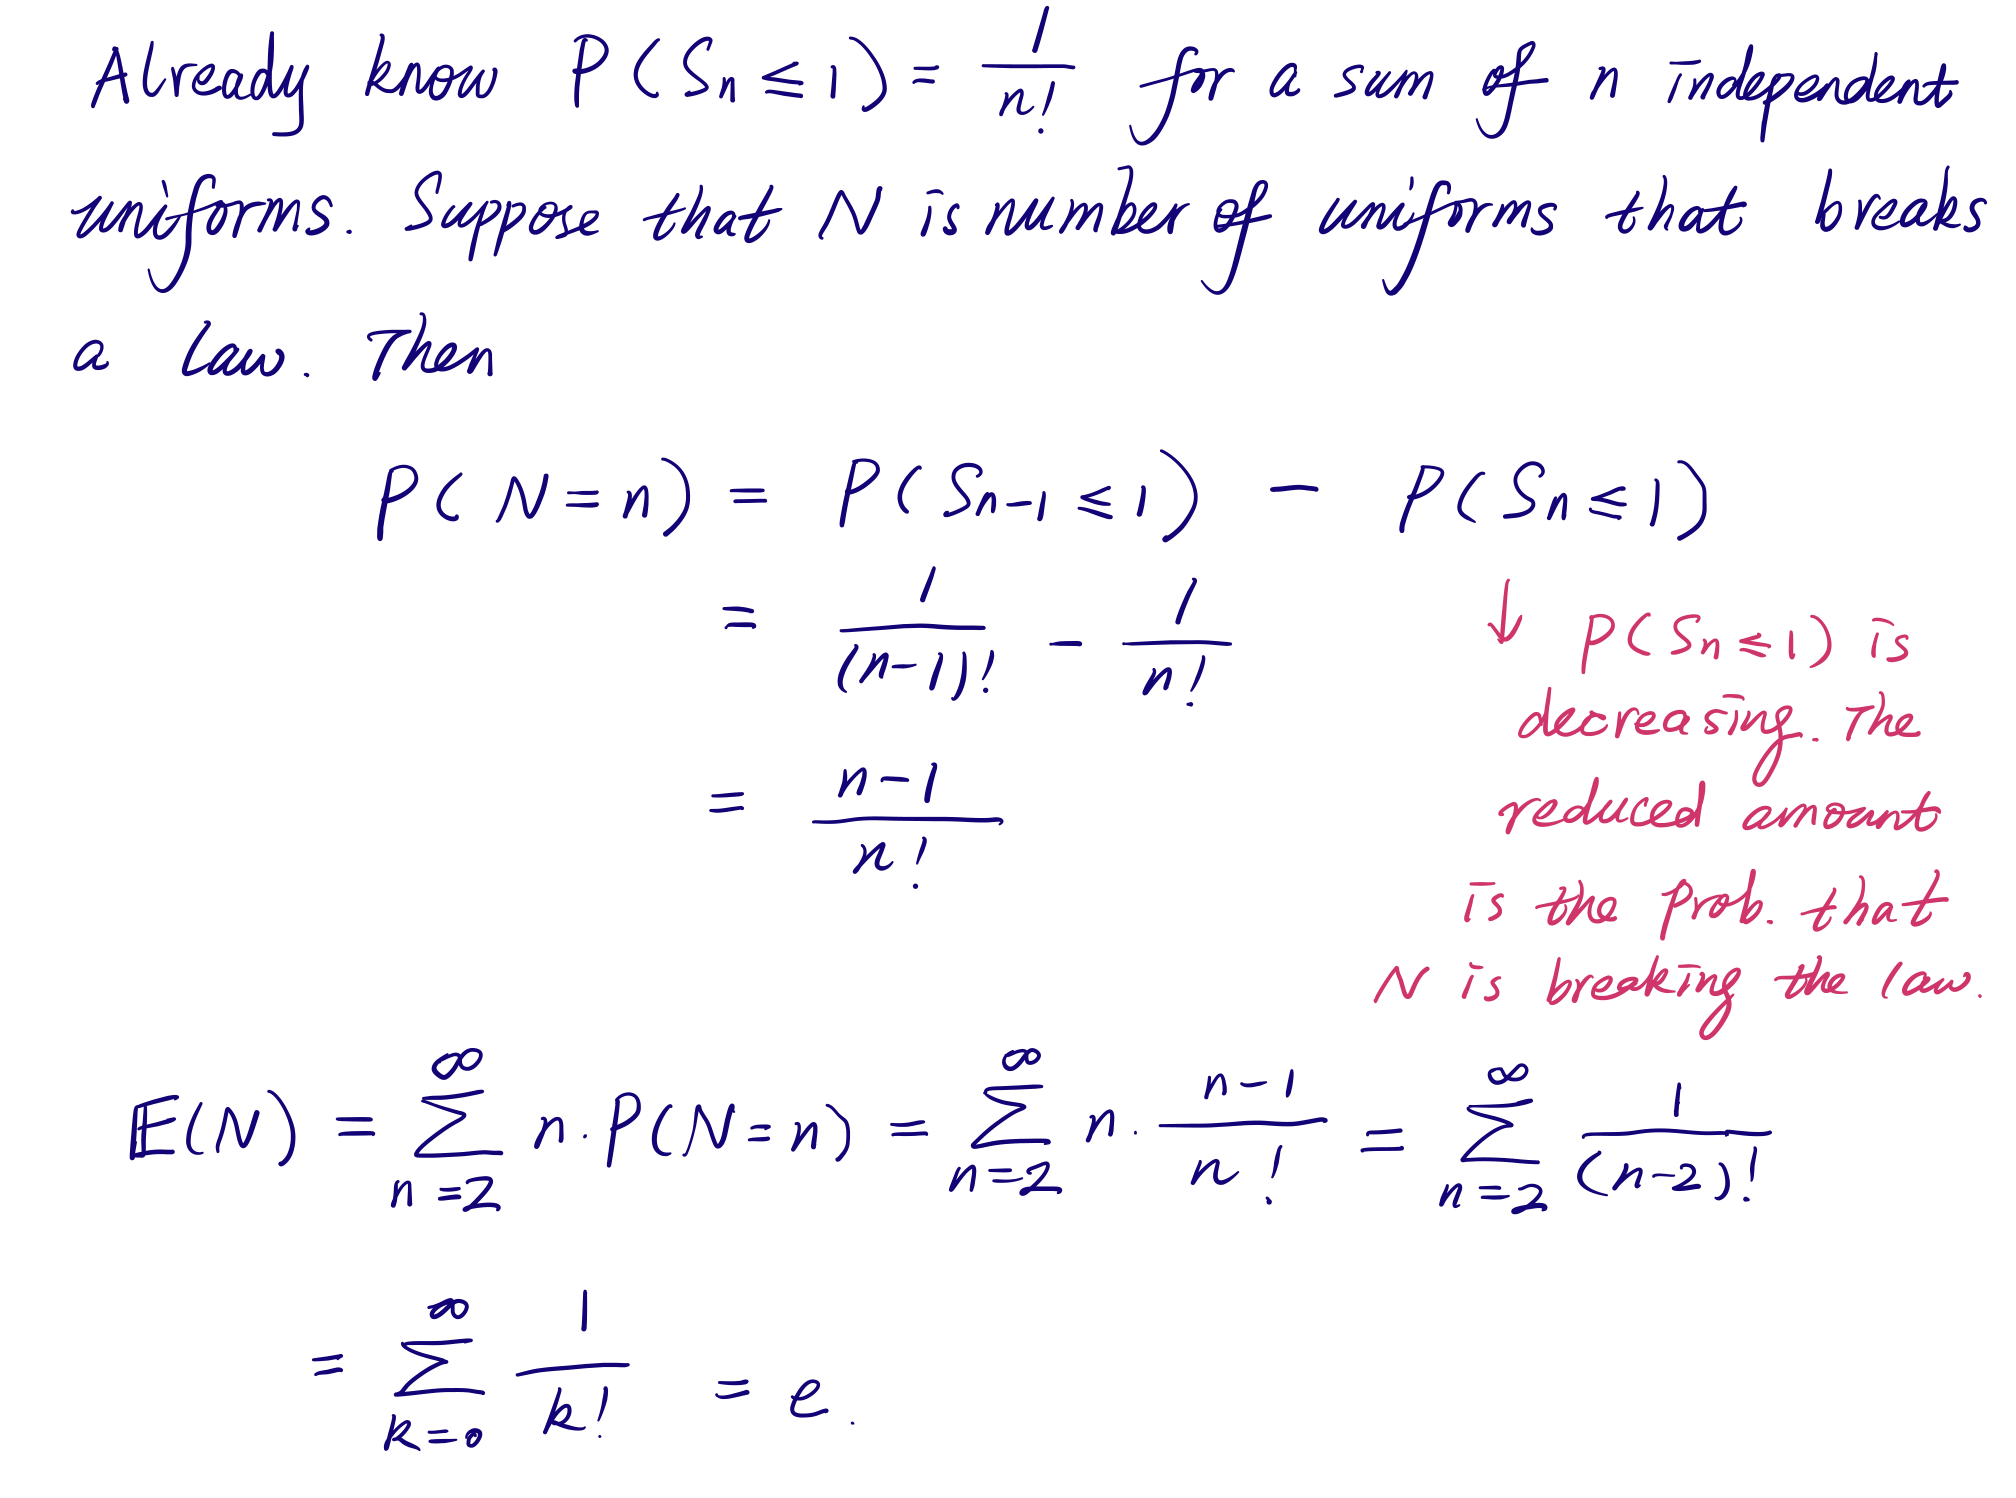 Already know P(Sn ≤ 1) = 1/n! for a sum of n independent
uniforms. Suppose that N is number of uniforms that breaks
a law. Then
P(N = n) = P(Sn-1 ≤ 1) - P(Sn ≤ 1)
= 1/(n-1)! - 1/n!
= n-1/n!
↓ P(Sn ≤ 1) is
decreasing. The
reduced amount
is the prob. that
N is breaking the law.
E(N) = ∑_{n=2}^{∞} n · P(N = n) = ∑_{n=2}^{∞} n · n-1/n! = ∑_{n=2}^{∞} 1/(n-2)!
= ∑_{k=0}^{∞} 1/k! = e.